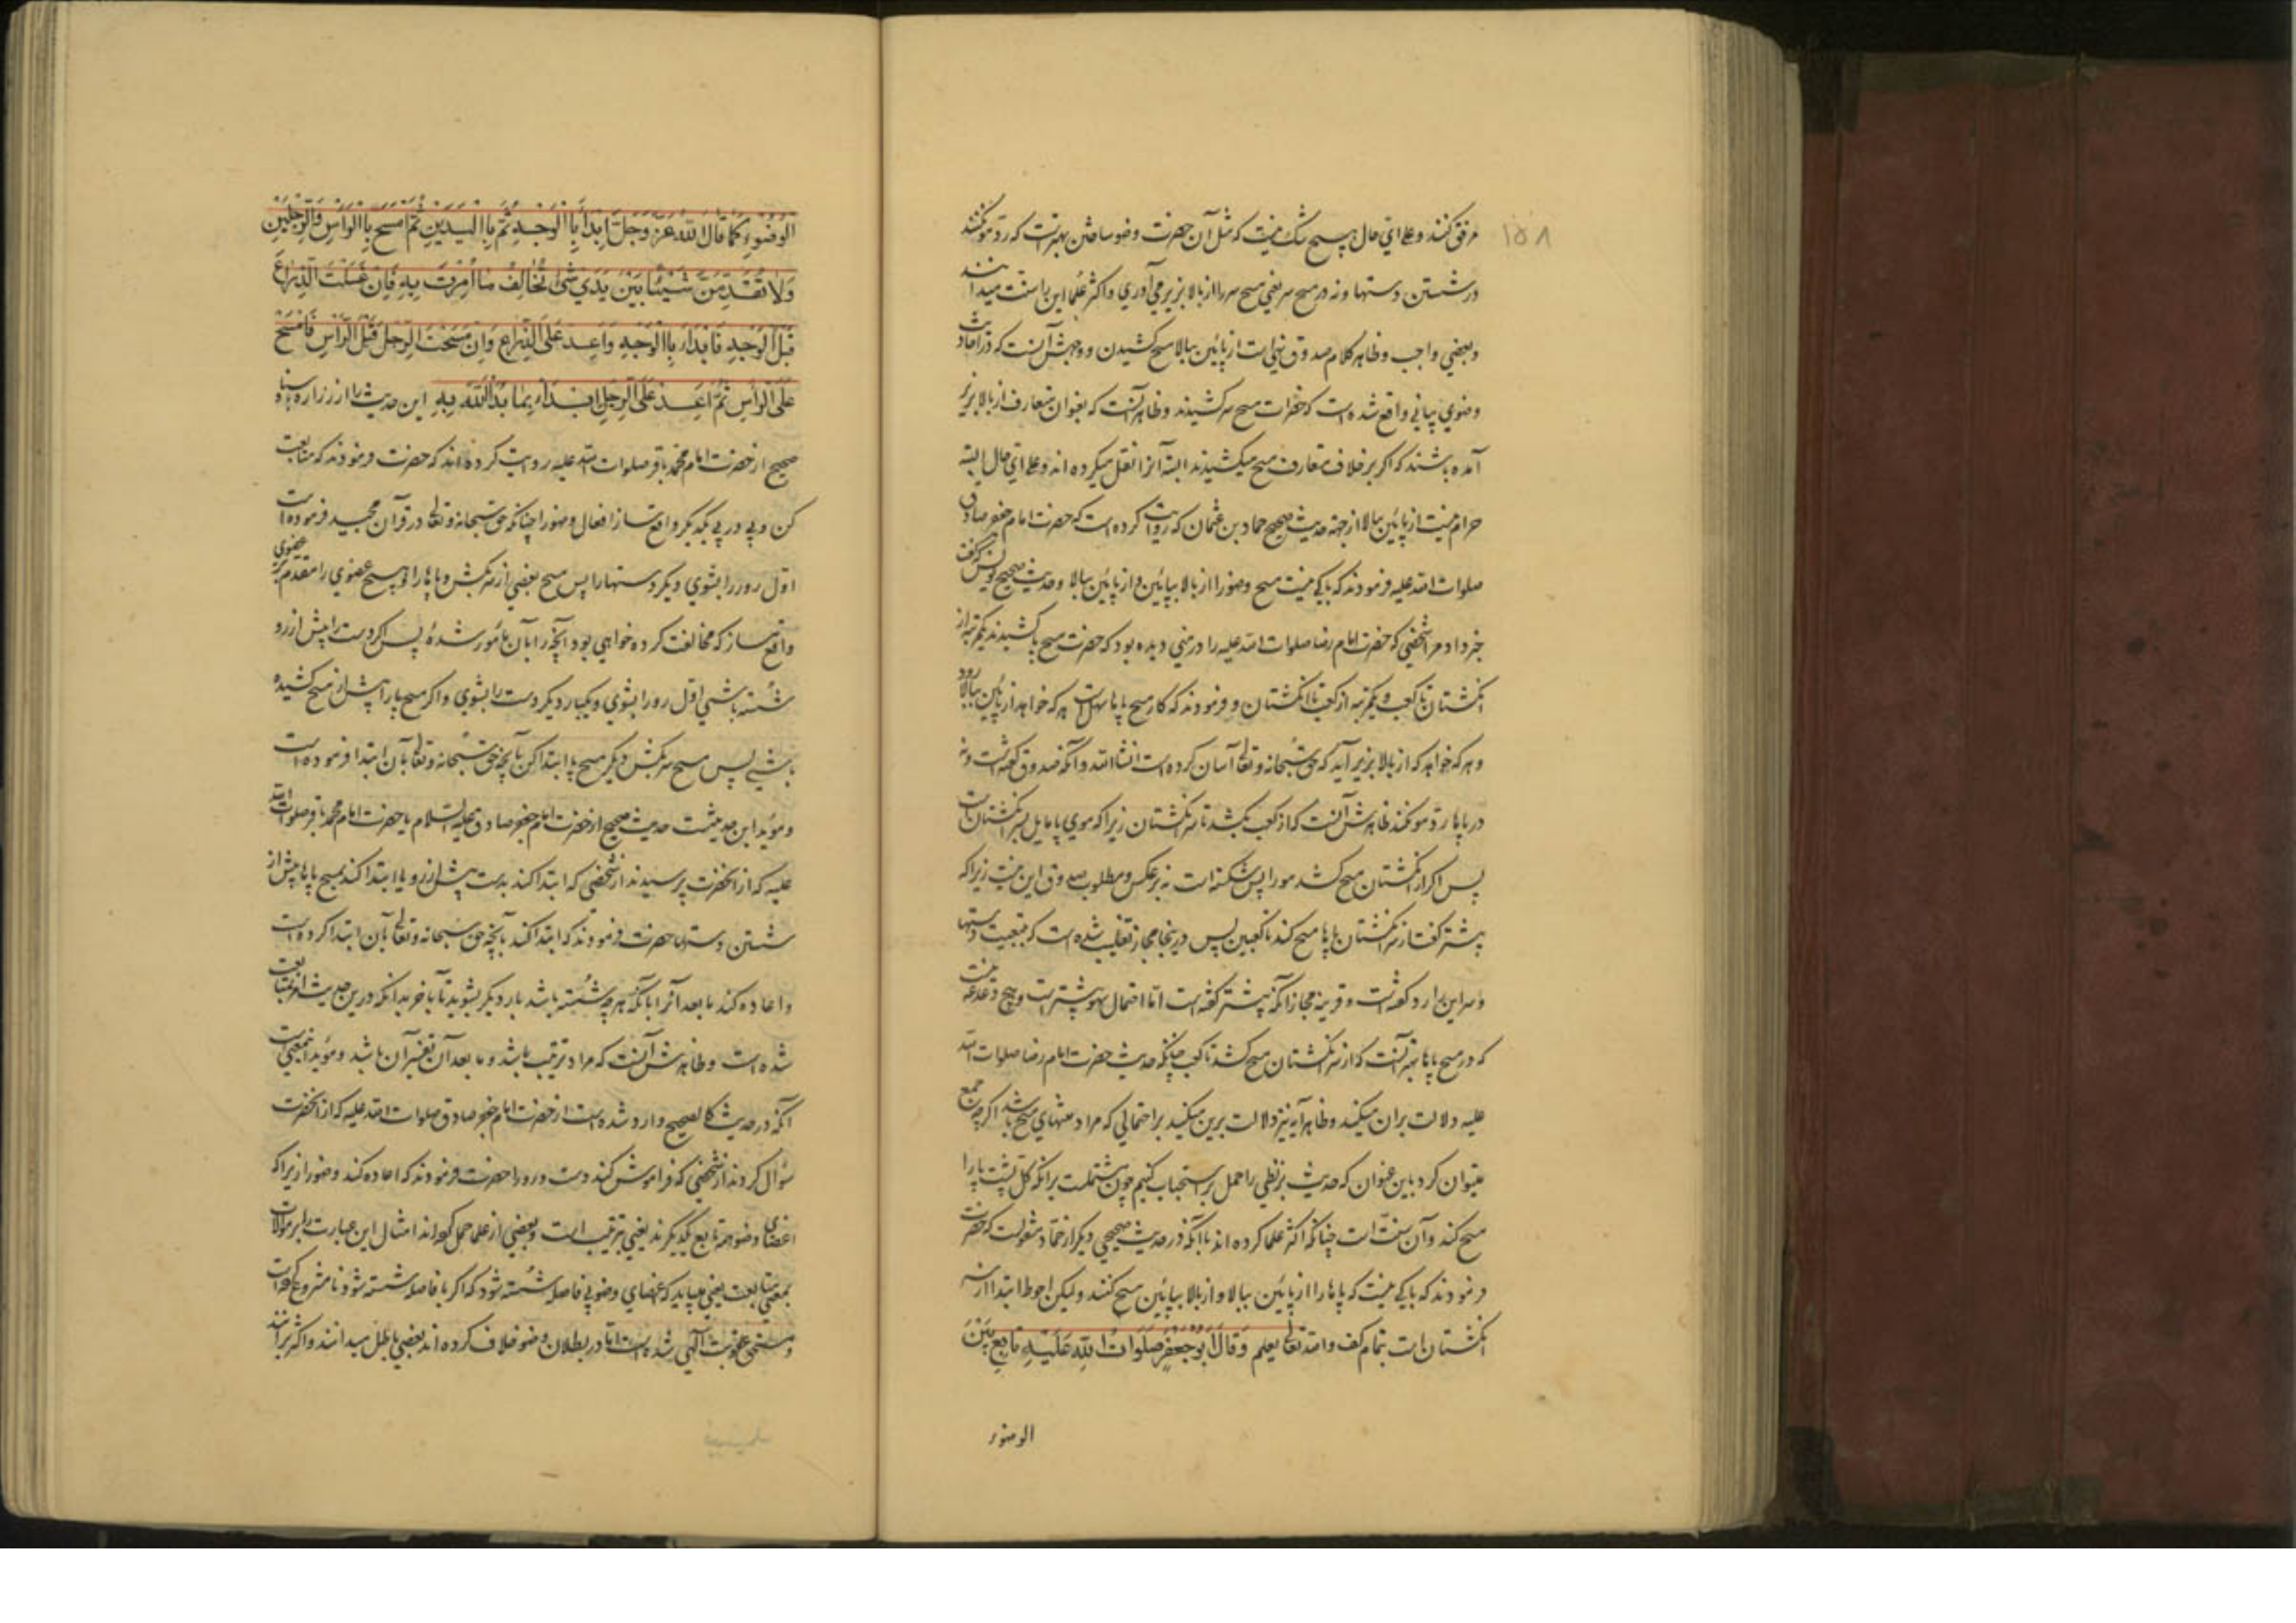 ۱۵۸
مرفق کنند و علی ای حال هیچ شک نیست که مثل آن حضرت وضو ساختن بهتر است که رد مو نکنند
در شستن دستها و نه در مسح سر یعنی مسح سر را از بالا بزیر می آوری و اکثر علما این را سنت میدانند
و بعضی واجب و ظاهر کلام صدوق نیز است از پائین ببالا مسح کشیدن و وجهش آنست که در احادیث
وضوی بیانی واقع شده است که حضرات مسح سر کشیدند و ظاهر آنست که بعنوان متعارف از بالا بزیر
آمده باشند که اگر بر خلاف متعارف مسح میکشیدند البته آنرا نقل میکرده اند و علی ای حال البته
حرام نیست از پائین ببالا از جهة حدیث صحیح حماد بن عثمان که روایت کرده است که حضرت امام جعفر صادق
صلوات الله علیه فرمودند که باکی نیست مسح وضو را از بالا بپائین و از پائین ببالا و حدیث صحیح یونس که گفت
خبر داد مرا شخصی که حضرت امام رضا صلوات الله علیه را در منی دیده بود که حضرت مسح پا کشیدند یکمرتبه از
انگشتان تا کعب و یکمرتبه از کعب تا انگشتان و فرمودند که کار مسح پاها سهل است هر که خواهد از پایین ببالا رود
و هر که خواهد که از بالا بزیر آید که حق سبحانه و تعالی آسان کرده است انشاء الله و آنکه صدوق گفته است و نه
در پاها رد مو نکند ظاهرش آنست که از کعب بکشد تا سر انگشتان زیرا که موی پا مایل بسر انگشتان است
پس اگر از انگشتان مسح کشد مو را پس شکسته است نه بر عکس و مطلوب صدوق این نیست زیرا که
پیشتر گفت از سر انگشتان پاها مسح کند تا کعبین پس در اینجا مجاز تغلیب شده است که بتبعیت دستها
و سر این را رد گفته است و قرینه مجاز آنکه پیشتر گفته است اما احتمال سهو بیشتر است و هیچ دغدغه نیست
که در مسح پاها بهتر آنست که از سر انگشتان مسح کشد تا کعب چنانکه حدیث حضرت امام رضا صلوات الله
علیه دلالت بر آن میکند و ظاهر آیه نیز دلالت برین میکند بر احتمالی که مراد منتهای مسح باشد اگر چه جمع
میتوان کرد باین عنوان که حدیث بزنطی را حمل بر استحباب کنیم چون مشتملست بر آنکه کل پشت پا را
مسح کند و آن سنت است چنانکه اکثر علما کرده اند با آنکه در حدیث صحیحی دیگر از حماد منقولست که حضرت
فرمودند که باکی نیست که پاها را از پائین ببالا و از بالا بپائین مسح کنند و لیکن احوط ابتدا از سر
انگشتان است بتمام کف و الله تعالی یعلم وَقَالَ اَبُوجَعْفَرٍ صَلَوَاتُ اللّٰهِ عَلَیْهِ تَابِعْ بَیْنَ
الوضوء
اَلْوُضُوْءِ کَمَا قَالَ اللّٰهُ عَزَّ وَجَلَّ اِبْدَأْ بِالْوَجْهِ ثُمَّ بِالْیَدَیْنِ ثُمَّ امْسَحْ بِالرَّأْسِ وَالرِّجْلَیْنِ
وَلَا تُقَدِّمَنَّ شَیْئًا بَیْنَ یَدَیْ شَیْءٍ تُخَالِفْ مَا اُمِرْتَ بِهِ فَاِنْ غَسَلْتَ الذِّرَاعَ
قَبْلَ الْوَجْهِ فَابْدَأْ بِالْوَجْهِ وَاَعِدْ عَلَی الذِّرَاعِ وَاِنْ مَسَحْتَ الرِّجْلَ قَبْلَ الرَّأْسِ فَامْسَحْ
عَلَی الرَّأْسِ ثُمَّ اَعِدْ عَلَی الرِّجْلِ اِبْدَأْ بِمَا بَدَأَ اللّٰهُ بِهِ این حدیث را از زراره باسناد
صحیح از حضرت امام محمد باقر صلوات الله علیه روایت کرده اند که حضرت فرمودند که متابعت
کن و پی در پی یکدیگر واقع ساز افعال وضو را چنانکه حق سبحانه و تعالی در قرآن مجید فرموده است
اول رو را بشوی دیگر دستها را پس مسح بعضی از سر بکش و پاها را و هیچ عضوی را مقدم بر عضوی
واقع مساز که مخالفت کرده خواهی بود آنچه را بآن مأمور شدهٔ پس اگر دست را پیش از رو
شسته باشی اول رو را بشوی و یکبار دیگر دست را بشوی و اگر مسح پا را پیش از سر مسح کشیده
باشی پس مسح سر بکش دیگر مسح پا ابتدا کن بآنچه حق سبحانه و تعالی بآن ابتدا فرموده است
و مؤید این حدیثست حدیث صحیح از حضرت امام جعفر صادق علیه السلام یا حضرت امام محمد باقر صلوات الله
علیه که از آنحضرت پرسیدند از شخصی که ابتدا کند بدست پیش از رو یا ابتدا کند بمسح پاها پیش از
شستن دستها حضرت فرمودند که ابتدا کند بآنچه حق سبحانه و تعالی بآن ابتدا کرده است
و اعاده کند ما بعد آنرا با آنکه هر چه شسته باشد بار دیگر بشوید تا بآخر بدانکه در این حدیث امر بمتابعت
شده است و ظاهرش آنست که مراد ترتیب باشد و ما بعد آن تفسیر آن باشد و مؤید اینمعنی است
آنکه در حدیث کالصحیح وارد شده است از حضرت امام جعفر صادق صلوات الله علیه که از آنحضرت
سؤال کردند از شخصی که فراموش کند دست و رو را حضرت فرمودند که اعاده کند وضو را زیرا که
اعضای وضو همه تابع یکدیگرند یعنی بترتیب است و بعضی از علما حمل کرده اند امثال این عبارت را بر موالات
بمعنی متابعت یعنی میباید که اعضای وضو بی فاصله شسته شود که اگر با فاصله شسته شود نامشروع کرده است
و مستحق عقوبت آلهی شده است اما در بطلان وضو خلاف کرده اند بعضی باطل میدانند و اکثر برآنند